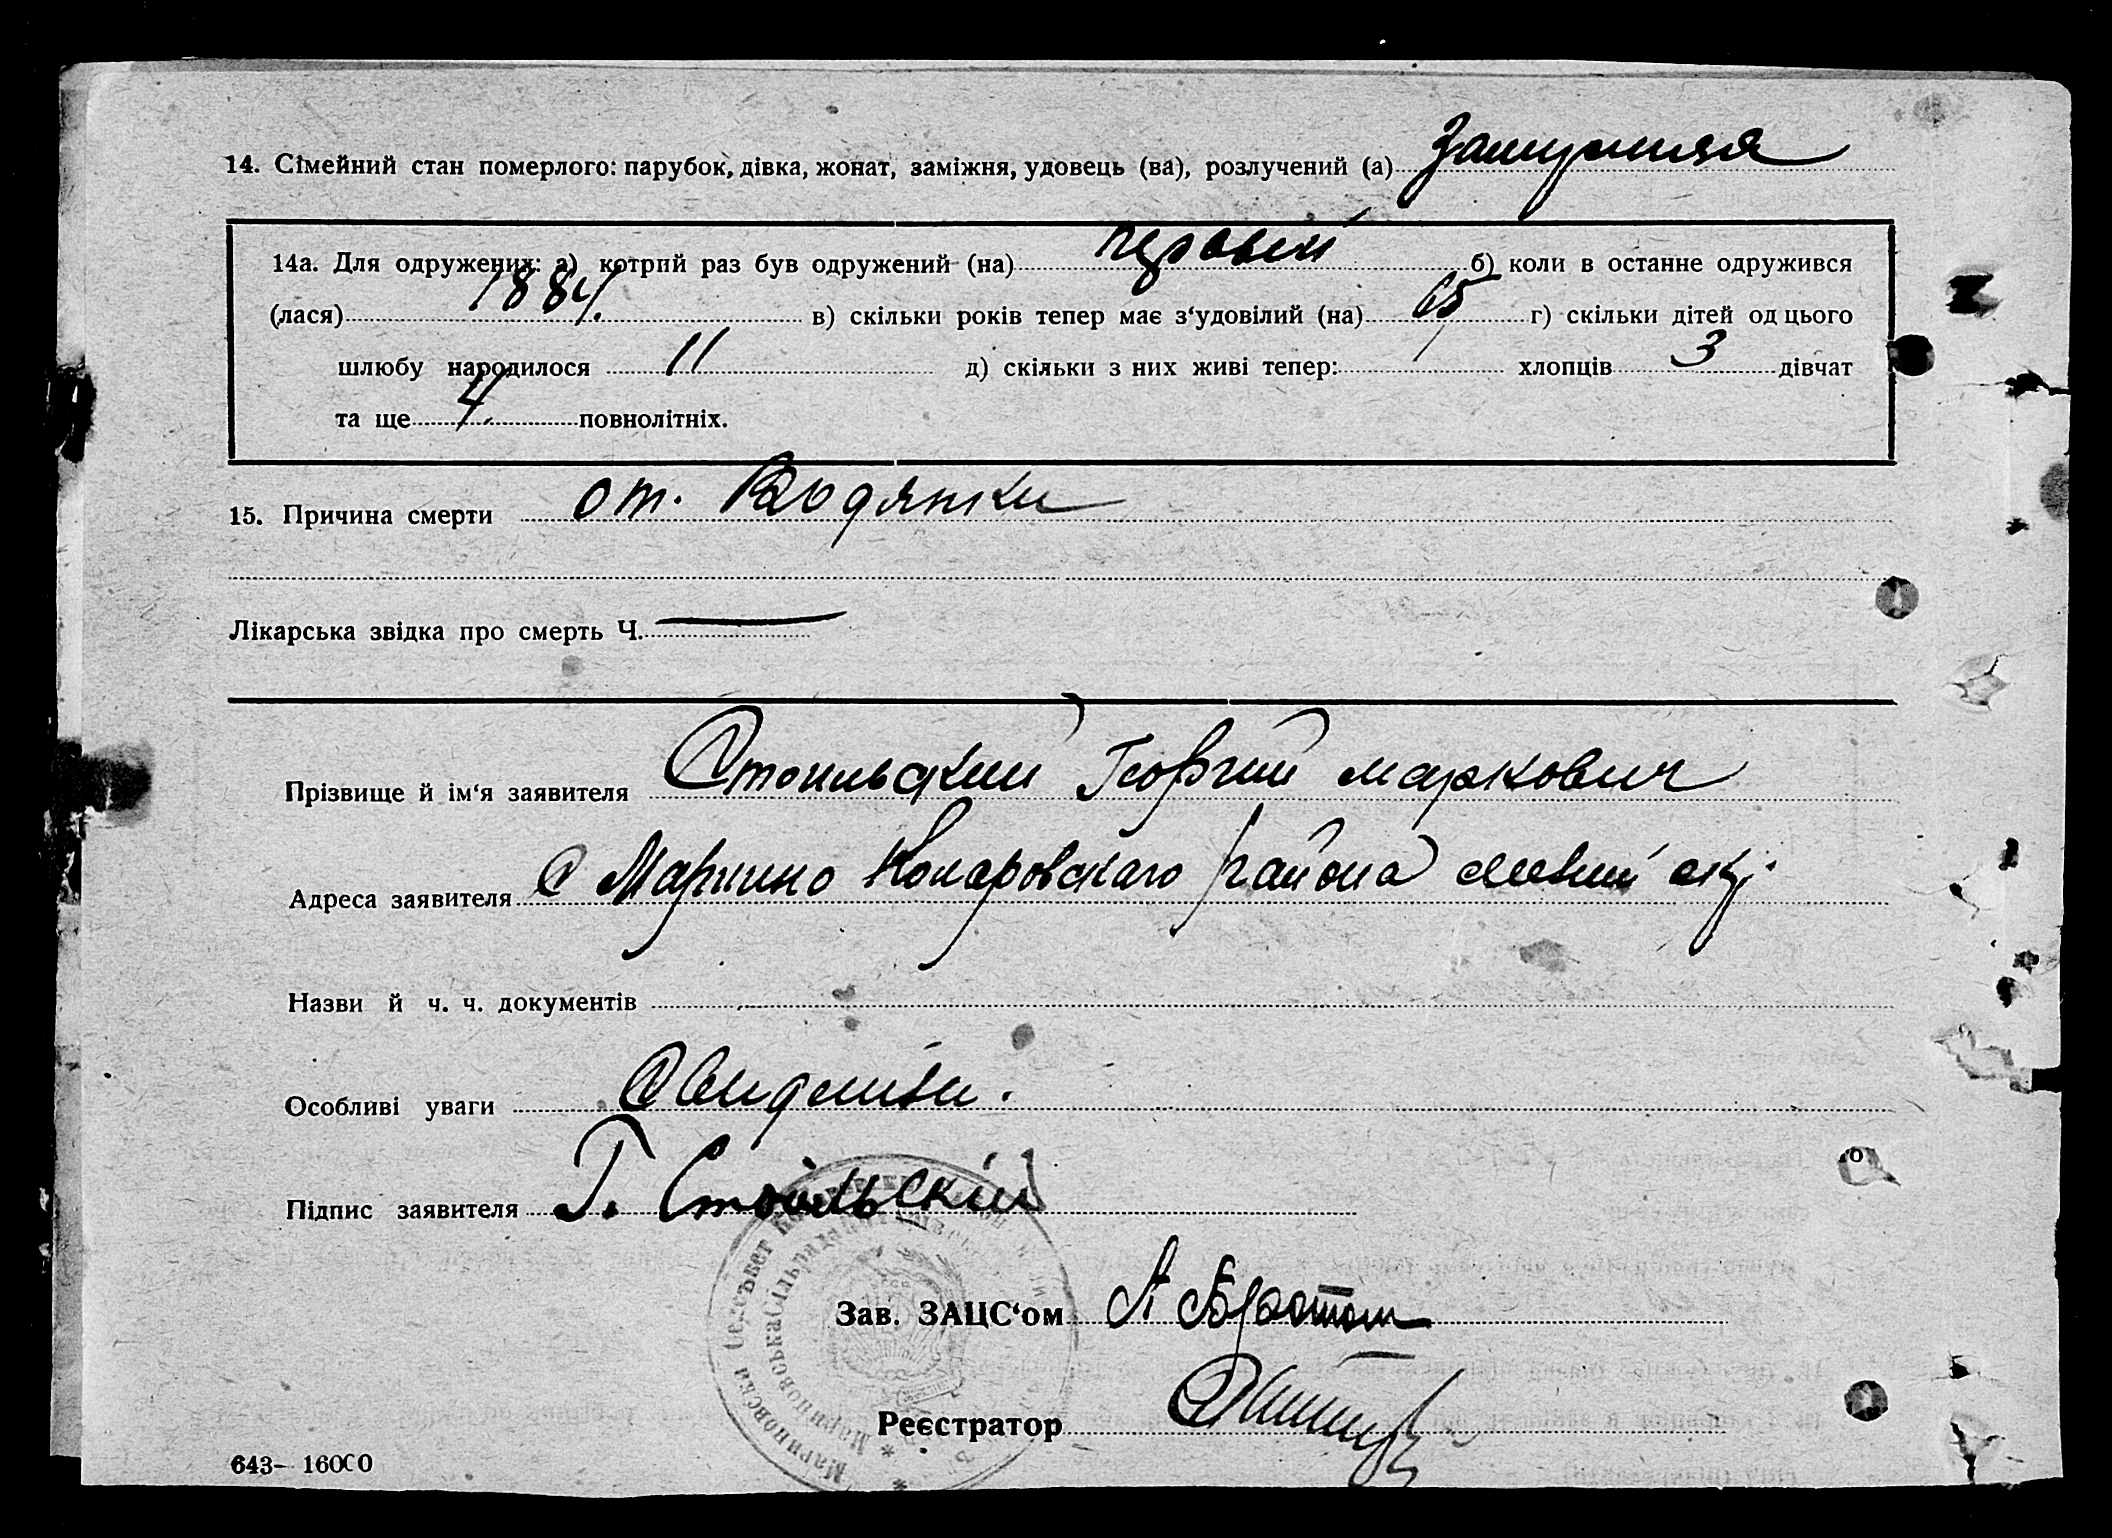 14. Сімейний стан померлого: парубок, дівка, жонат, заміжня, удовець (ва), розлучений (а) Замужняя
14а. Для одружених: а) котрий раз був одружений (на) первий б) коли в останне одружився
(лася) 1884. в) скільки років тепер має з‘удовілий (на) 65 г) скільки дітей од цього
шлюбу народилося 11 д) скільки з них живі тепер: 1 хлопців 3 дівчат
та ще 4 повнолітніх.
15. Причина смерти от. Водянки
Лікарська звідка про смерть Ч. —
Прізвище й ім‘я заявителя Стоильский Георгий маркович
Адреса заявителя С Марино Комаровского района
Назви й ч. ч. документів
Особливі уваги
Підпис заявителя Г. Стоільскій
Зав. ЗАЦС‘ом А
Реєстратор
643– 16000